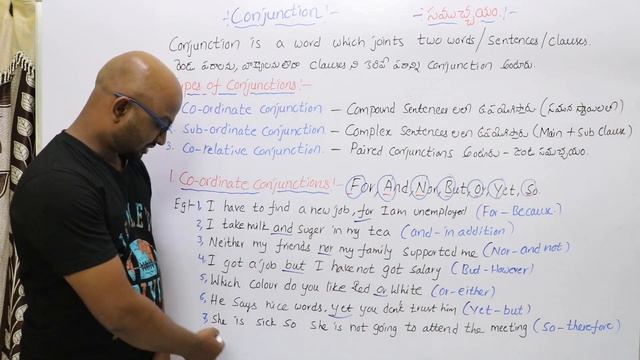 -: Conjunction :- -: సముచ్చయం :-
Conjunction is a word which joints two words/sentences/clauses.
రెండు పదాలను, వాక్యాలను లేదా clauses ని కలిపే పదాన్ని Conjunction అంటారు.
Types of Conjunctions :-
Co-ordinate conjunction – Compound Sentences లలో ఉపయోగిస్తారు (సమాన స్థాయిలలో)
2. Sub-ordinate conjunction – Complex Sentences లలో ఉపయోగిస్తారు (Main + Sub clause)
3. Co-relative conjunction – Paired conjunctions అంటారు – జంట సముచ్చయం.
1. Co-ordinate conjunctions :- For, And, Nor, But, Or, Yet, So
Eg:- 1, I have to find a new job, for I am unemployed (For-Because)
2, I take milk and suger in my tea (and - in addition)
3, Neither my friends nor my family supported me (Nor-and not)
4, I got a job but I have not got salary (But-However)
5, Which colour do you like Red or White (or-either)
6, He says nice words, yet you don't trust him (Yet-but)
7, She is sick so she is not going to attend the meeting (So-therefore)